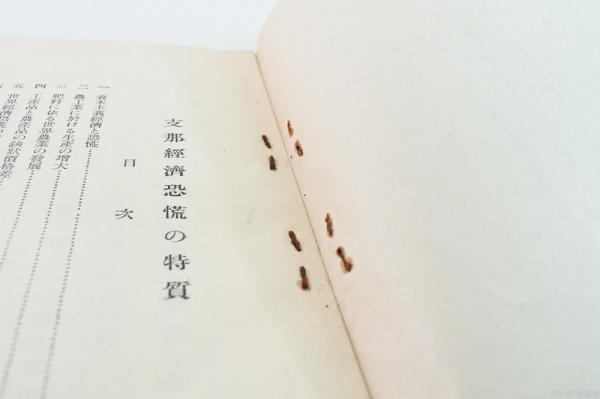 支那經濟恐慌の特質
目次
一 資本主義經濟と恐慌
二 農工業に於ける生産の增大
肥料に依る世界農業の發展
四 工產品と農產品の鋏狀價格差
五 世界經濟恐慌の